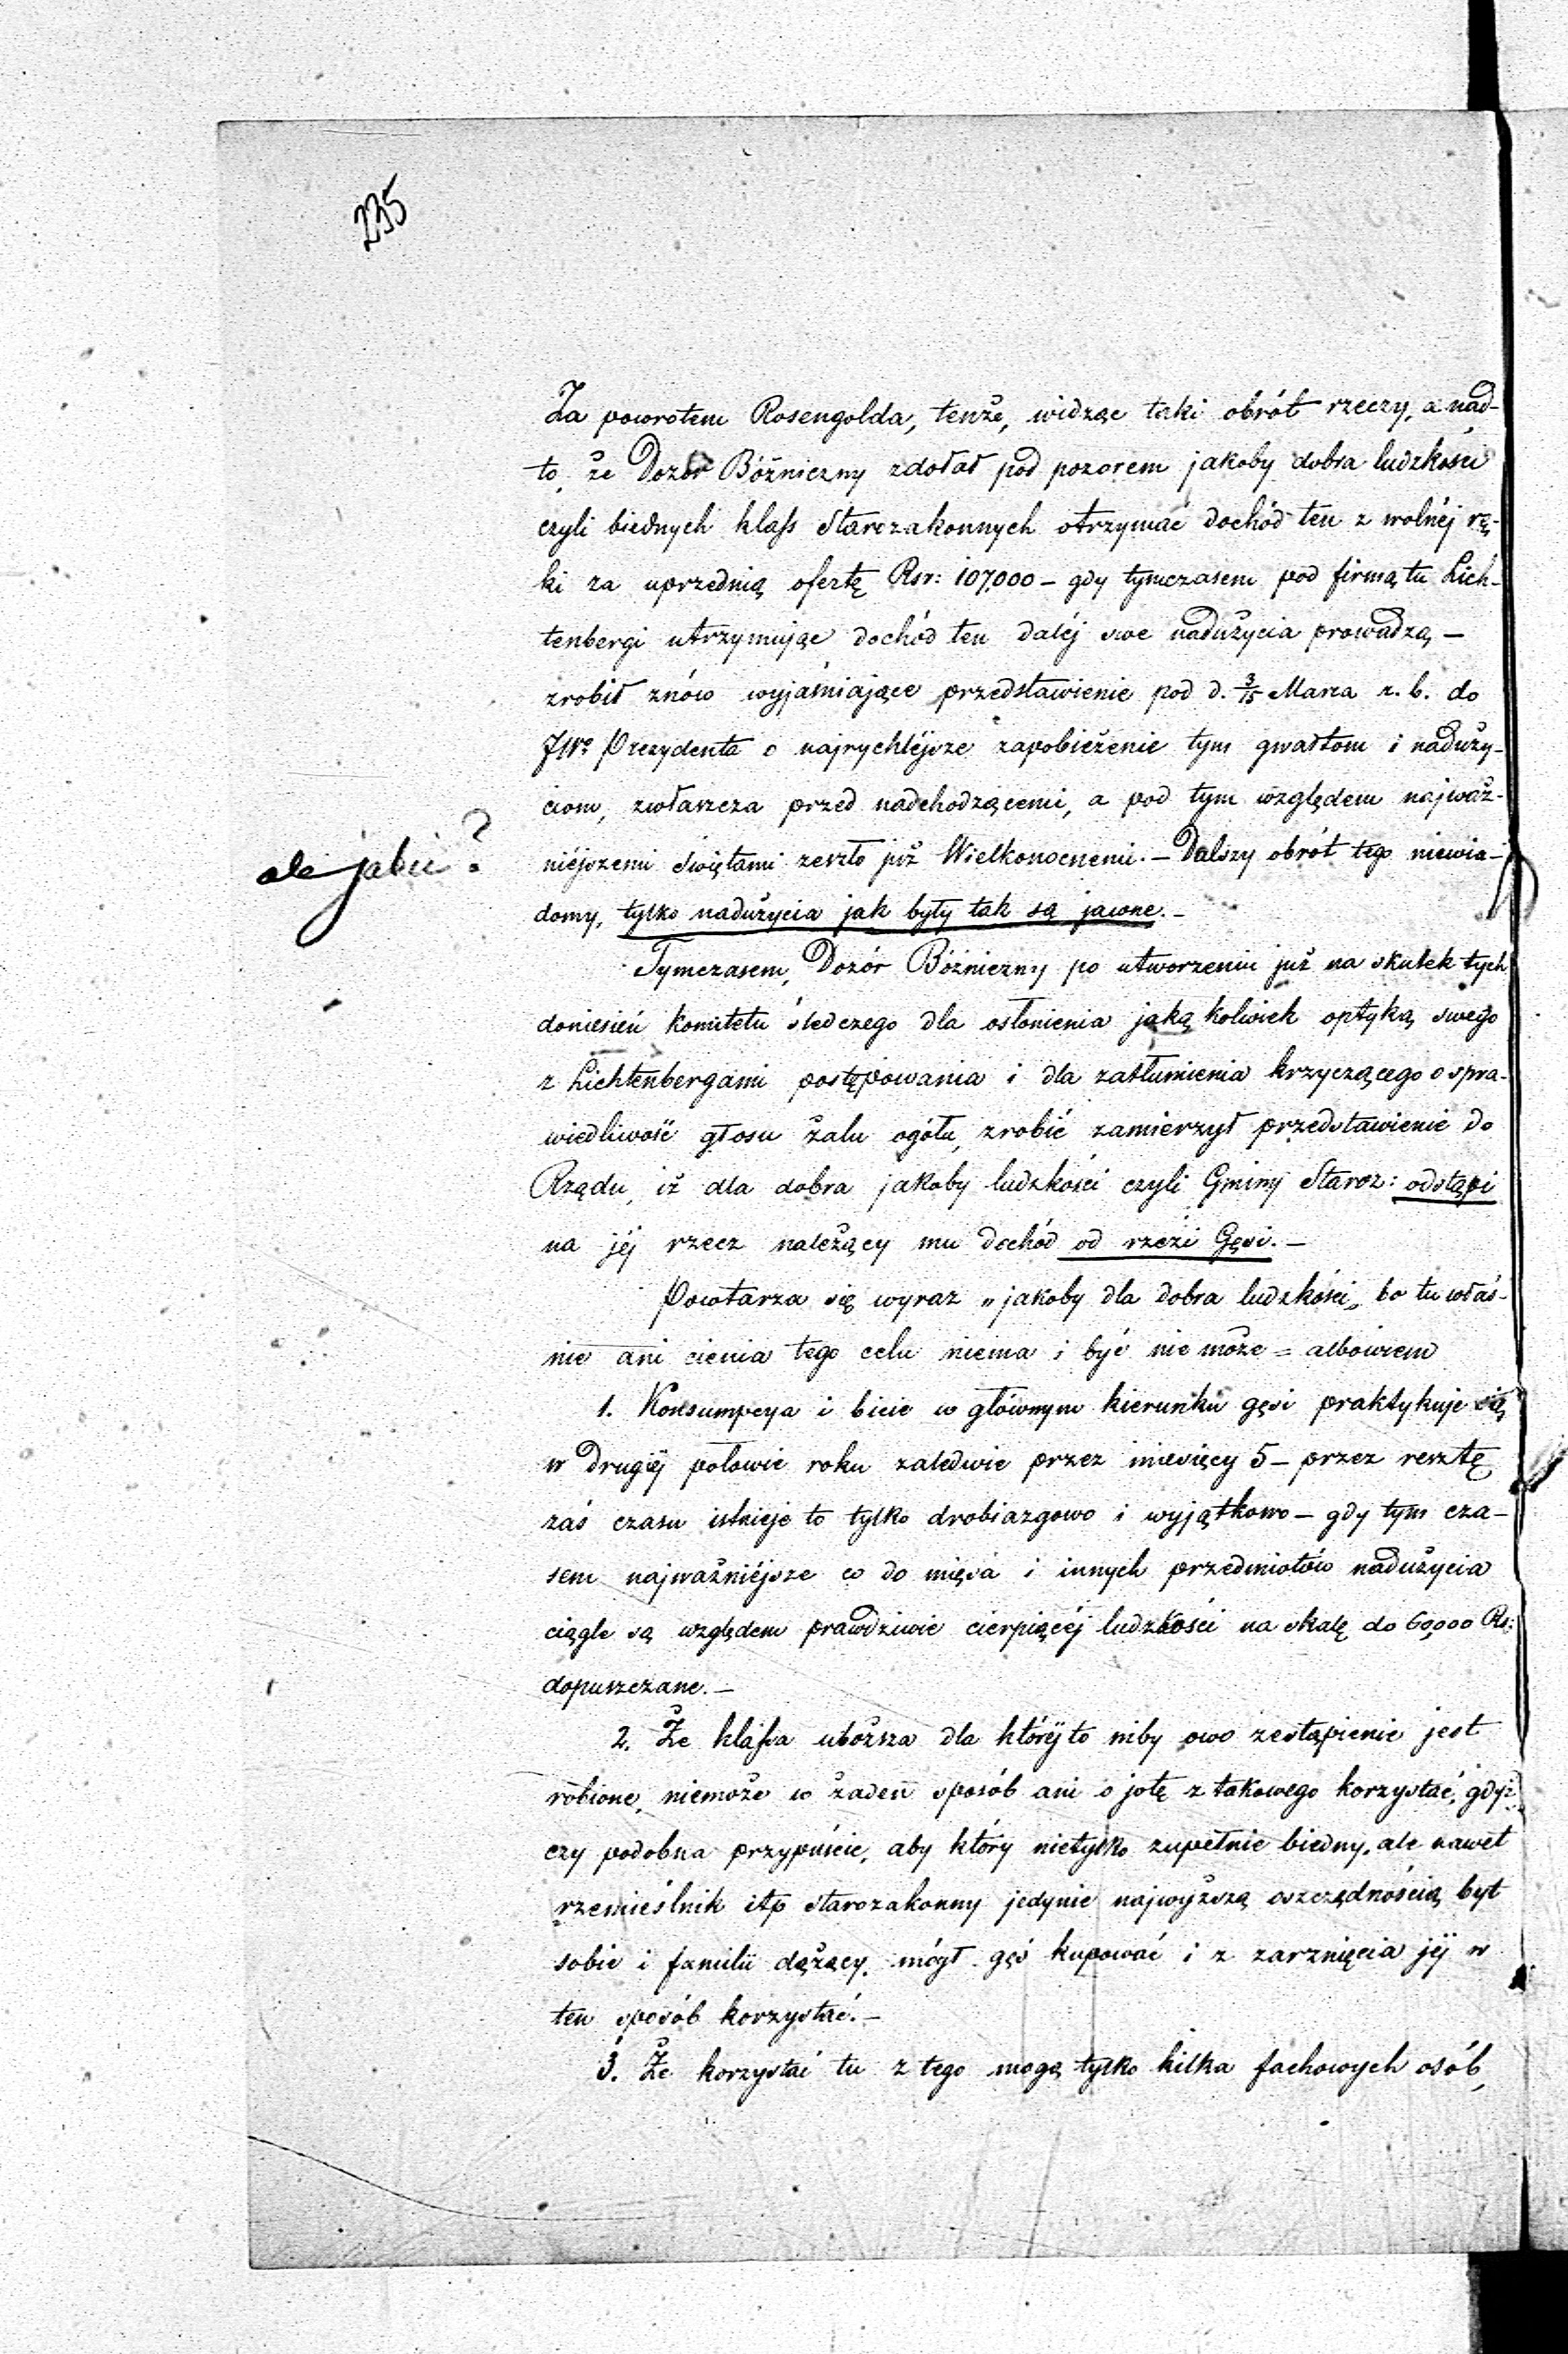 235
Za powrotem Rosengolda, tenże, widząc taki obrót rzeczy, a nad-
to, że Dozór Bóżniczny zdołał pod pozorem jakoby dobra ludzkości
czyli biednych klass Starozakonnych otrzymać dochód ten z wolnéj rę-
ki za uprzednią ofertę Rsr: 107,000 – gdy tymczasem pod firmą tu Lich-
tenbergi utrzymując dochód ten daléj swe nadużycia prowadzą –
zrobił znów wyjaśniające przedstawienie pod d. 3/15 Marca r. b. do
JWo Prezydenta o najrychléjsze zapobieżenie tym gwałtom i naduży-
ciom, zwłaszcza przed nadchodzącemi, a pod tym względem najważ-
niéjszemi świętami zeszło już Wielkonocnemi. – Dalszy obrót tego niewia-
ale jakie?
domy, tylko nadużycia jak były tak są jawne. –
Tymczasem, Dozór Bóżniczny po utworzeniu już na skutek tych
doniesień komitetu śledczego dla osłonienia jaką kolwiek optyką swego
z Lichtenbergami postępowania i dla zatłumienia krzyczącego o spra-
wiedliwość głosu żalu ogółu, zrobić zamierzył przedstawienie do
Rządu, iż dla dobra jakoby ludzkości czyli Gminy Staroz: odstąpi
na jéj rzecz należący mu dochód od rzezi Gęsi. –
Powtarza się wyraz „jakoby dla dobra ludzkości„ bo tu właś-
nie ani cienia tego celu niema i być nie może = albowiem
1. Konsumpcya i bicie w głównym kierunku gęsi praktykuje się
w drugiéj połowie roku zaledwie przez miesięcy 5 – przez resztę
zaś czasu istnieje to tylko drobiazgowo i wyjątkowo – gdy tym cza-
sem najważniéjsze co do mięsa i innych przedmiotów nadużycia
ciągle są względem prawdziwie cierpiącéj ludzkości na skalę do 60,000 Rs:
dopuszczane. –
2. Że klassa uboższa dla któréj to niby owo zestąpienie jest
robione, niemoże w żaden sposób ani o jotę z takowego korzystać, gdyż
czy podobna przypuścić, aby który nietylko zupełnie biedny, ale nawet
rzemieślnik itp starozakonny jedynie najwyższą oszczędnością byt
sobie i familii dążący, mógł gęś kupować i z zarznięcia jéj w
ten sposób korzystać. –
3. Że korzystać tu z tego mogą tylko kilka fachowych osób,